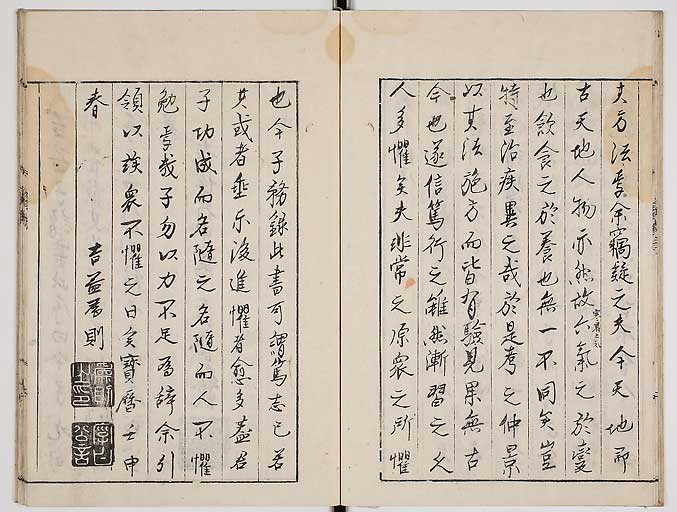 其方法爲余竊疑之夫今天地即
古天地人物亦然故六氣之於變
寒暑之於
也飲食之於養也無一不同矣豈
特至治疾異之哉於是考之仲景
以其法施方而皆有驗見果無古
今也遂信篤行之雖然漸習之久
人多懼矣夫非常之原衆之所懼
也今子務録此書可謂篤志已若
其或者垂示後進懼者愈多蓋君
子功成而名隨之名隨而人不懼
勉焉哉子勿以力不足爲辞余引
領以竢衆不懼之日矣寶暦壬申
春
吉益爲則
爲則
之印
公言